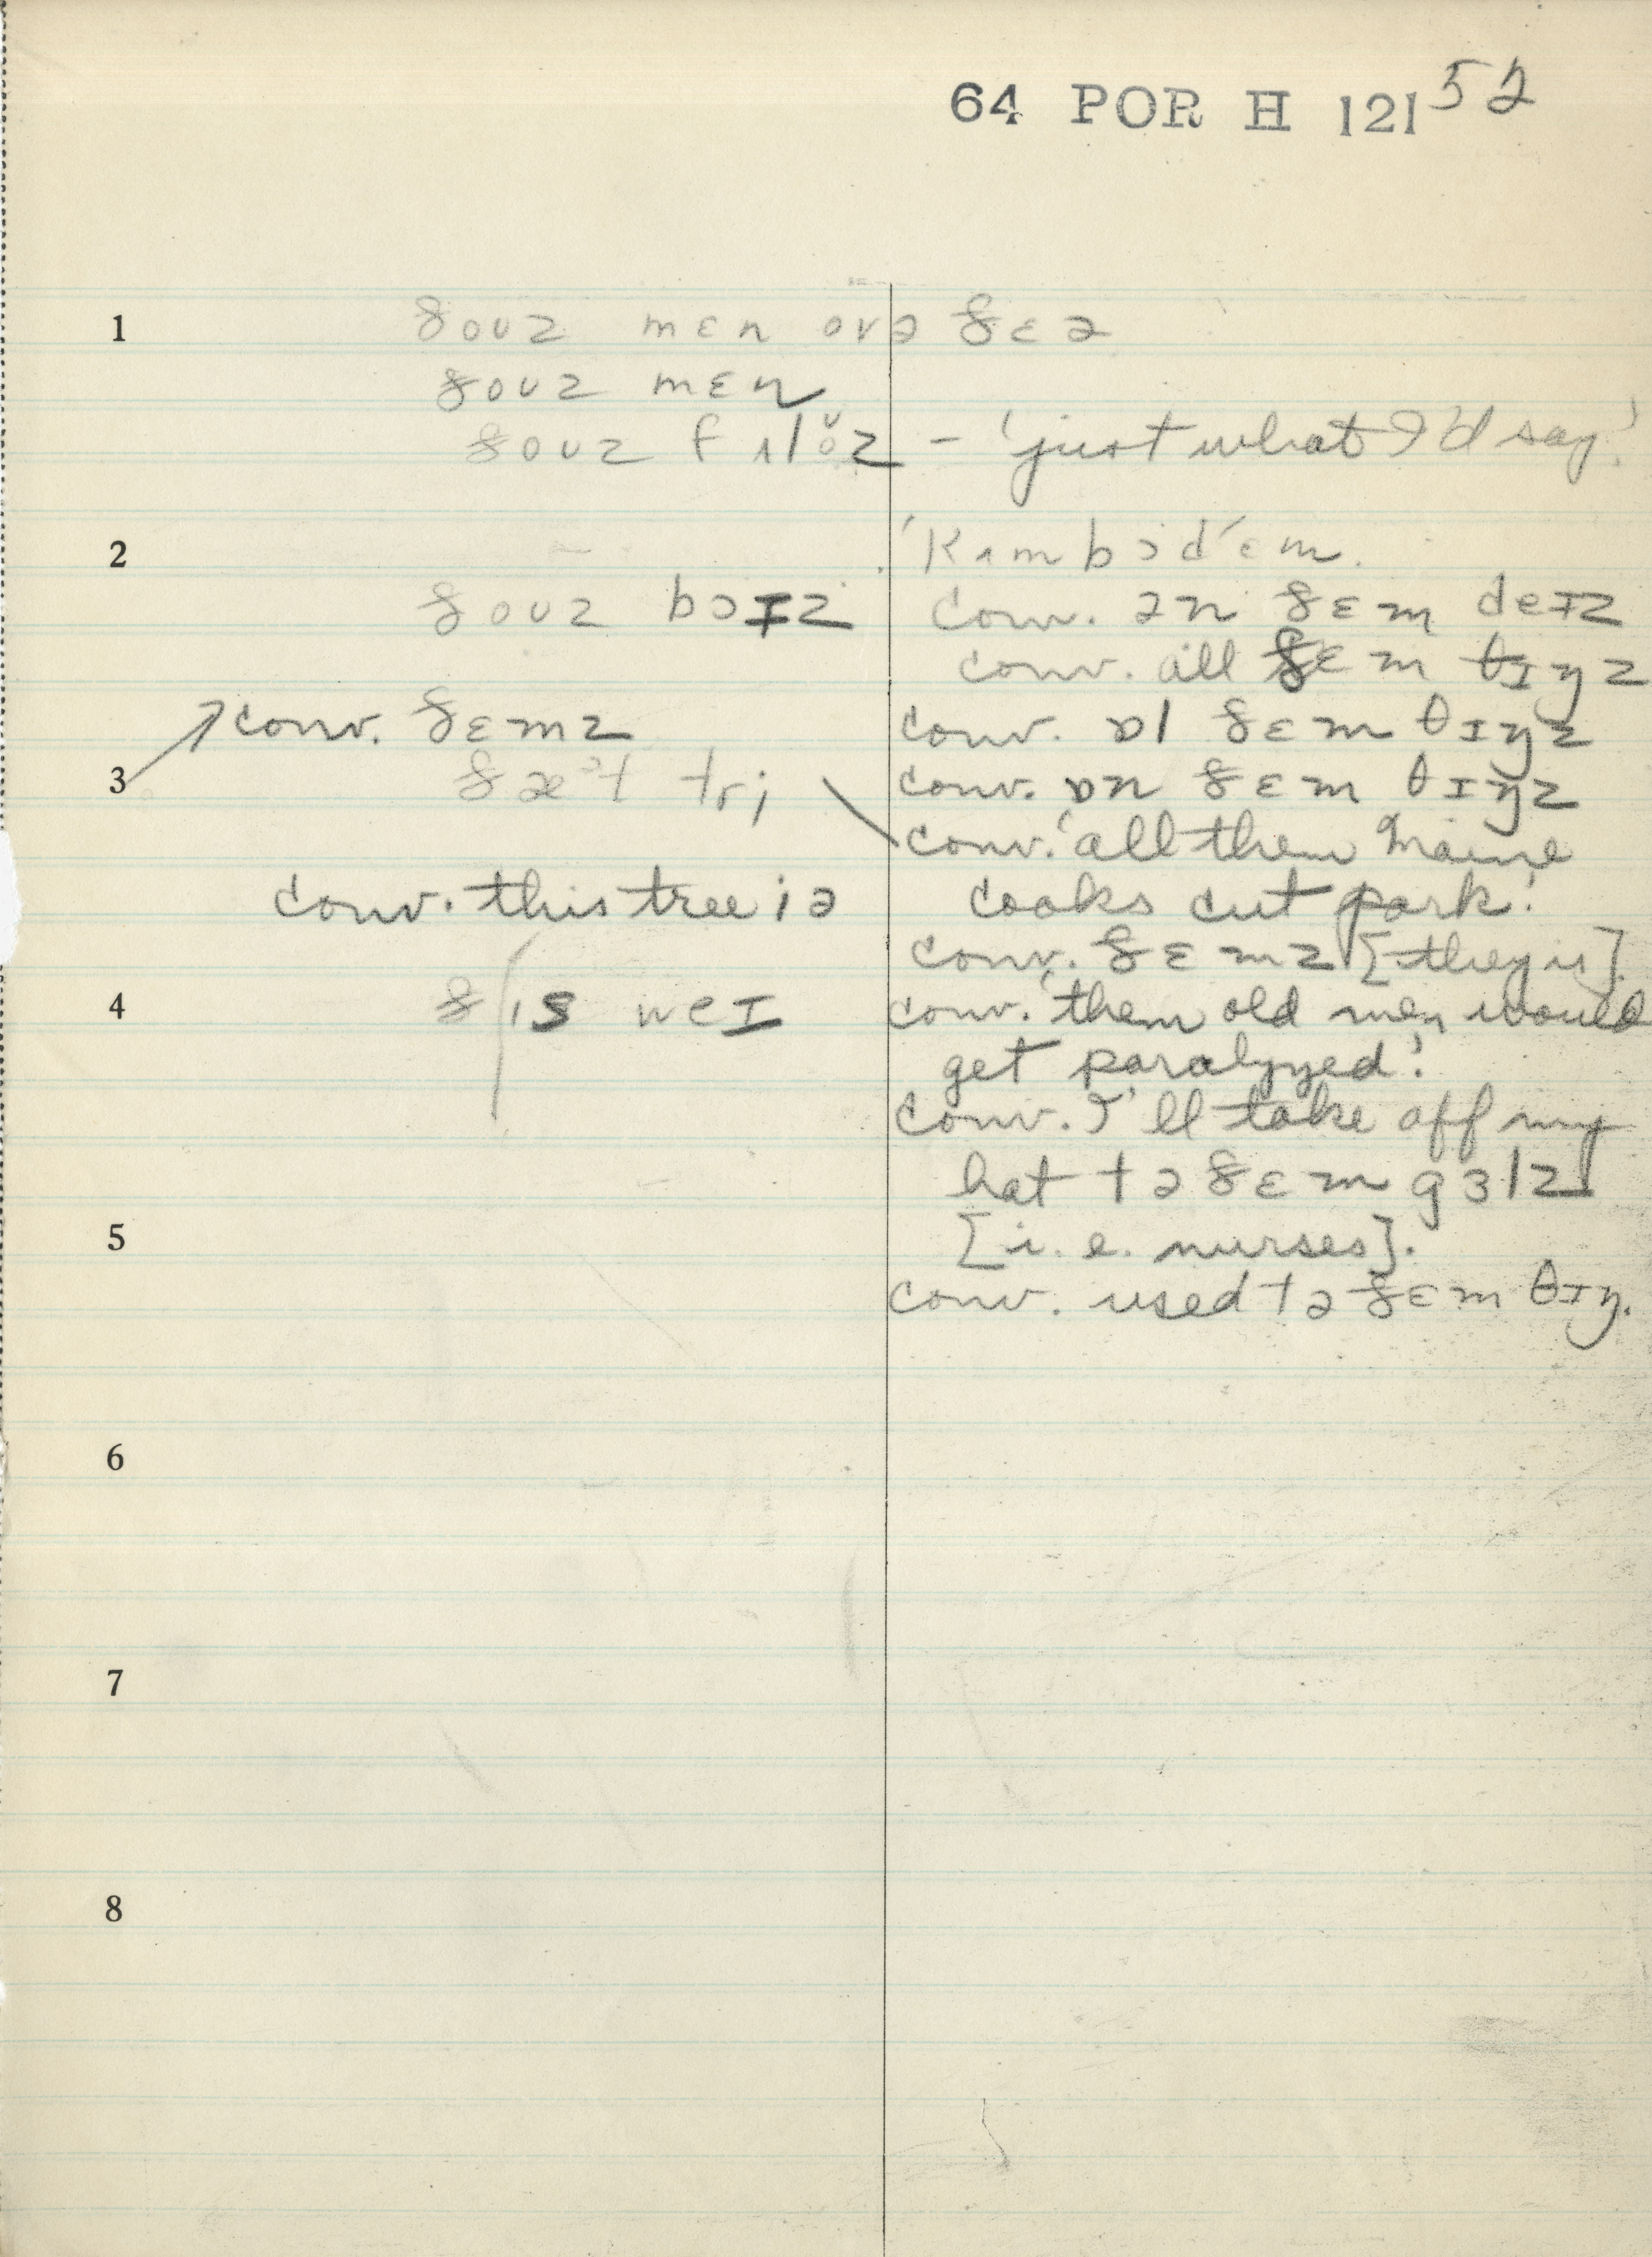 64 POR H 121 52
1 ðoʊz mɛn ovə ðɛə
ðoʊz mɛn
ðoʊz – 'just what I'd say!'
2
ðoʊz bɔɪz conv. ən ðɛm deɪz
conv. all ðɛm θɪŋz
conv. ðɛmz conv. ɒl ðɛm θɪŋz
3 ðæᵊt tri conv. ɒn ðɛm θɪŋz
conv. 'all them Maine
conv. this tree iə cooks cut pork!'
conv. ðɛmz [they is].
4 ðɪs weɪ conv. 'them old men would
get paralyzed!'
conv. I'll take off my
hat tə ðɛm gɜlz
5 [i.e. nurses].
conv. used tə ðɛm θɪŋ.
6
7
8